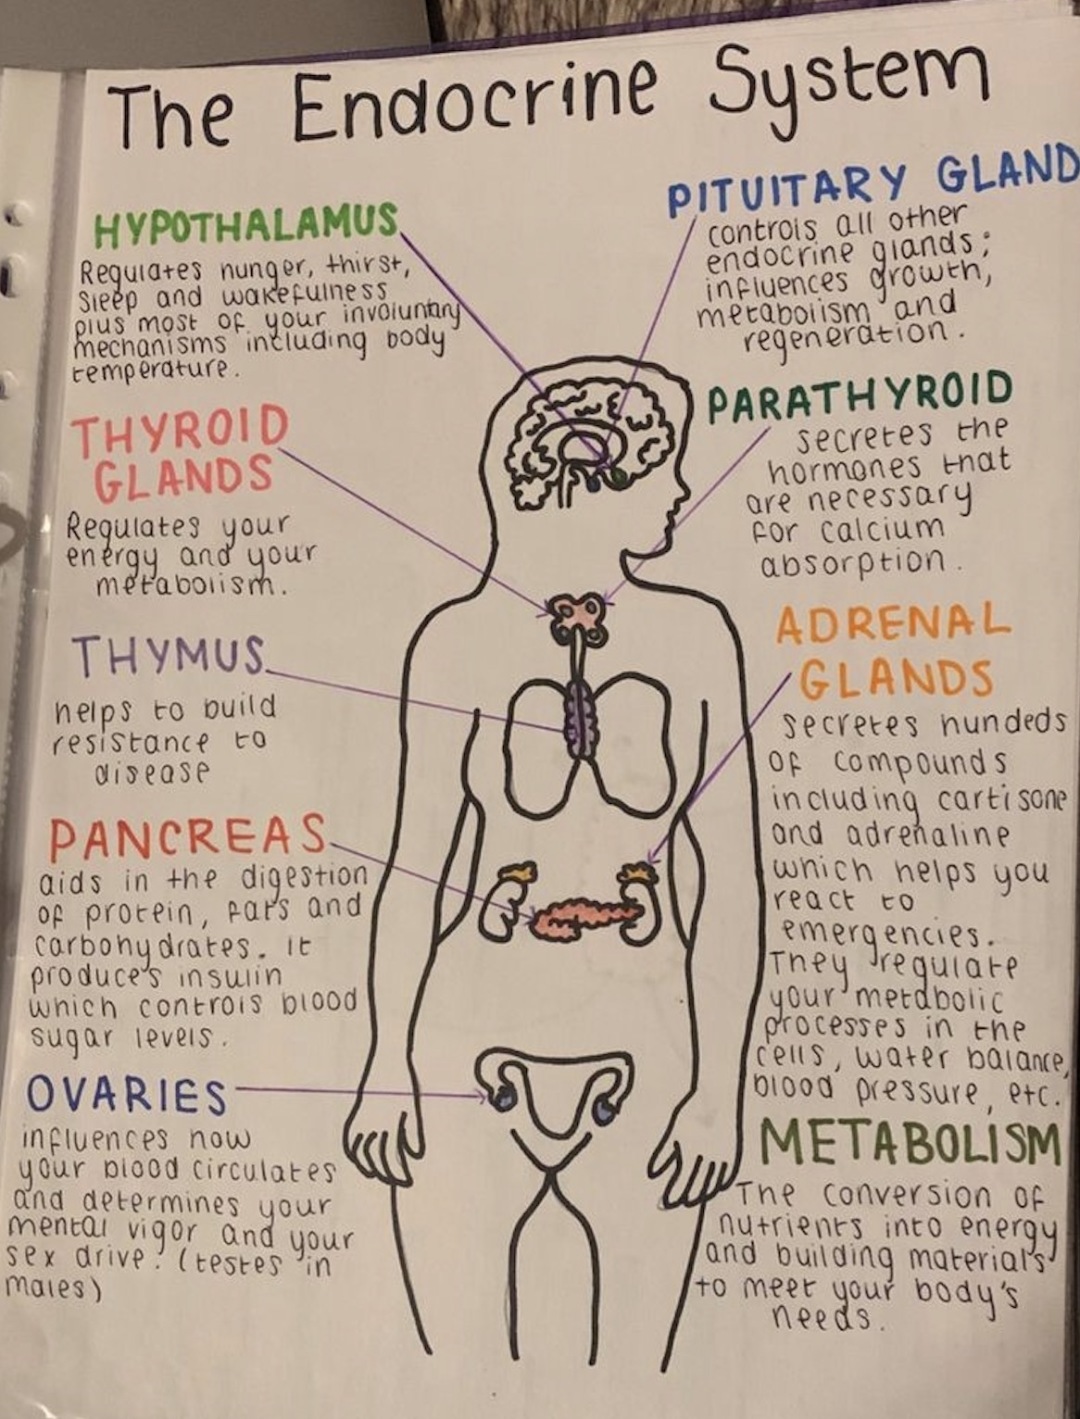 The Endocrine System
HYPOTHALAMUS
Regulates hunger, thirst,
sleep and wakefulness
plus most of your involuntary
mechanisms including body
temperature.
THYROID
GLANDS
Regulates your
energy and your
metabolism.
THYMUS
helps to build
resistance to
disease
PANCREAS
aids in the digestion
of protein, fats and
carbohydrates. it
produces insulin
which controls blood
sugar levels.
OVARIES
influences how
your blood circulates
and determines your
mental vigor and your
sex drive. (testes in
males)
PITUITARY GLAND
controls all other
endocrine glands;
influences growth,
metabolism and
regeneration.
PARATHYROID
secretes the
hormones that
are necessary
for calcium
absorption.
ADRENAL
GLANDS
secretes hundeds
of compounds
including cartisone
and adrenaline
which helps you
react to
emergencies.
They regulate
your metabolic
processes in the
cells, water balance,
blood pressure, etc.
METABOLISM
The conversion of
nutrients into energy
and building materials
to meet your body's
needs.